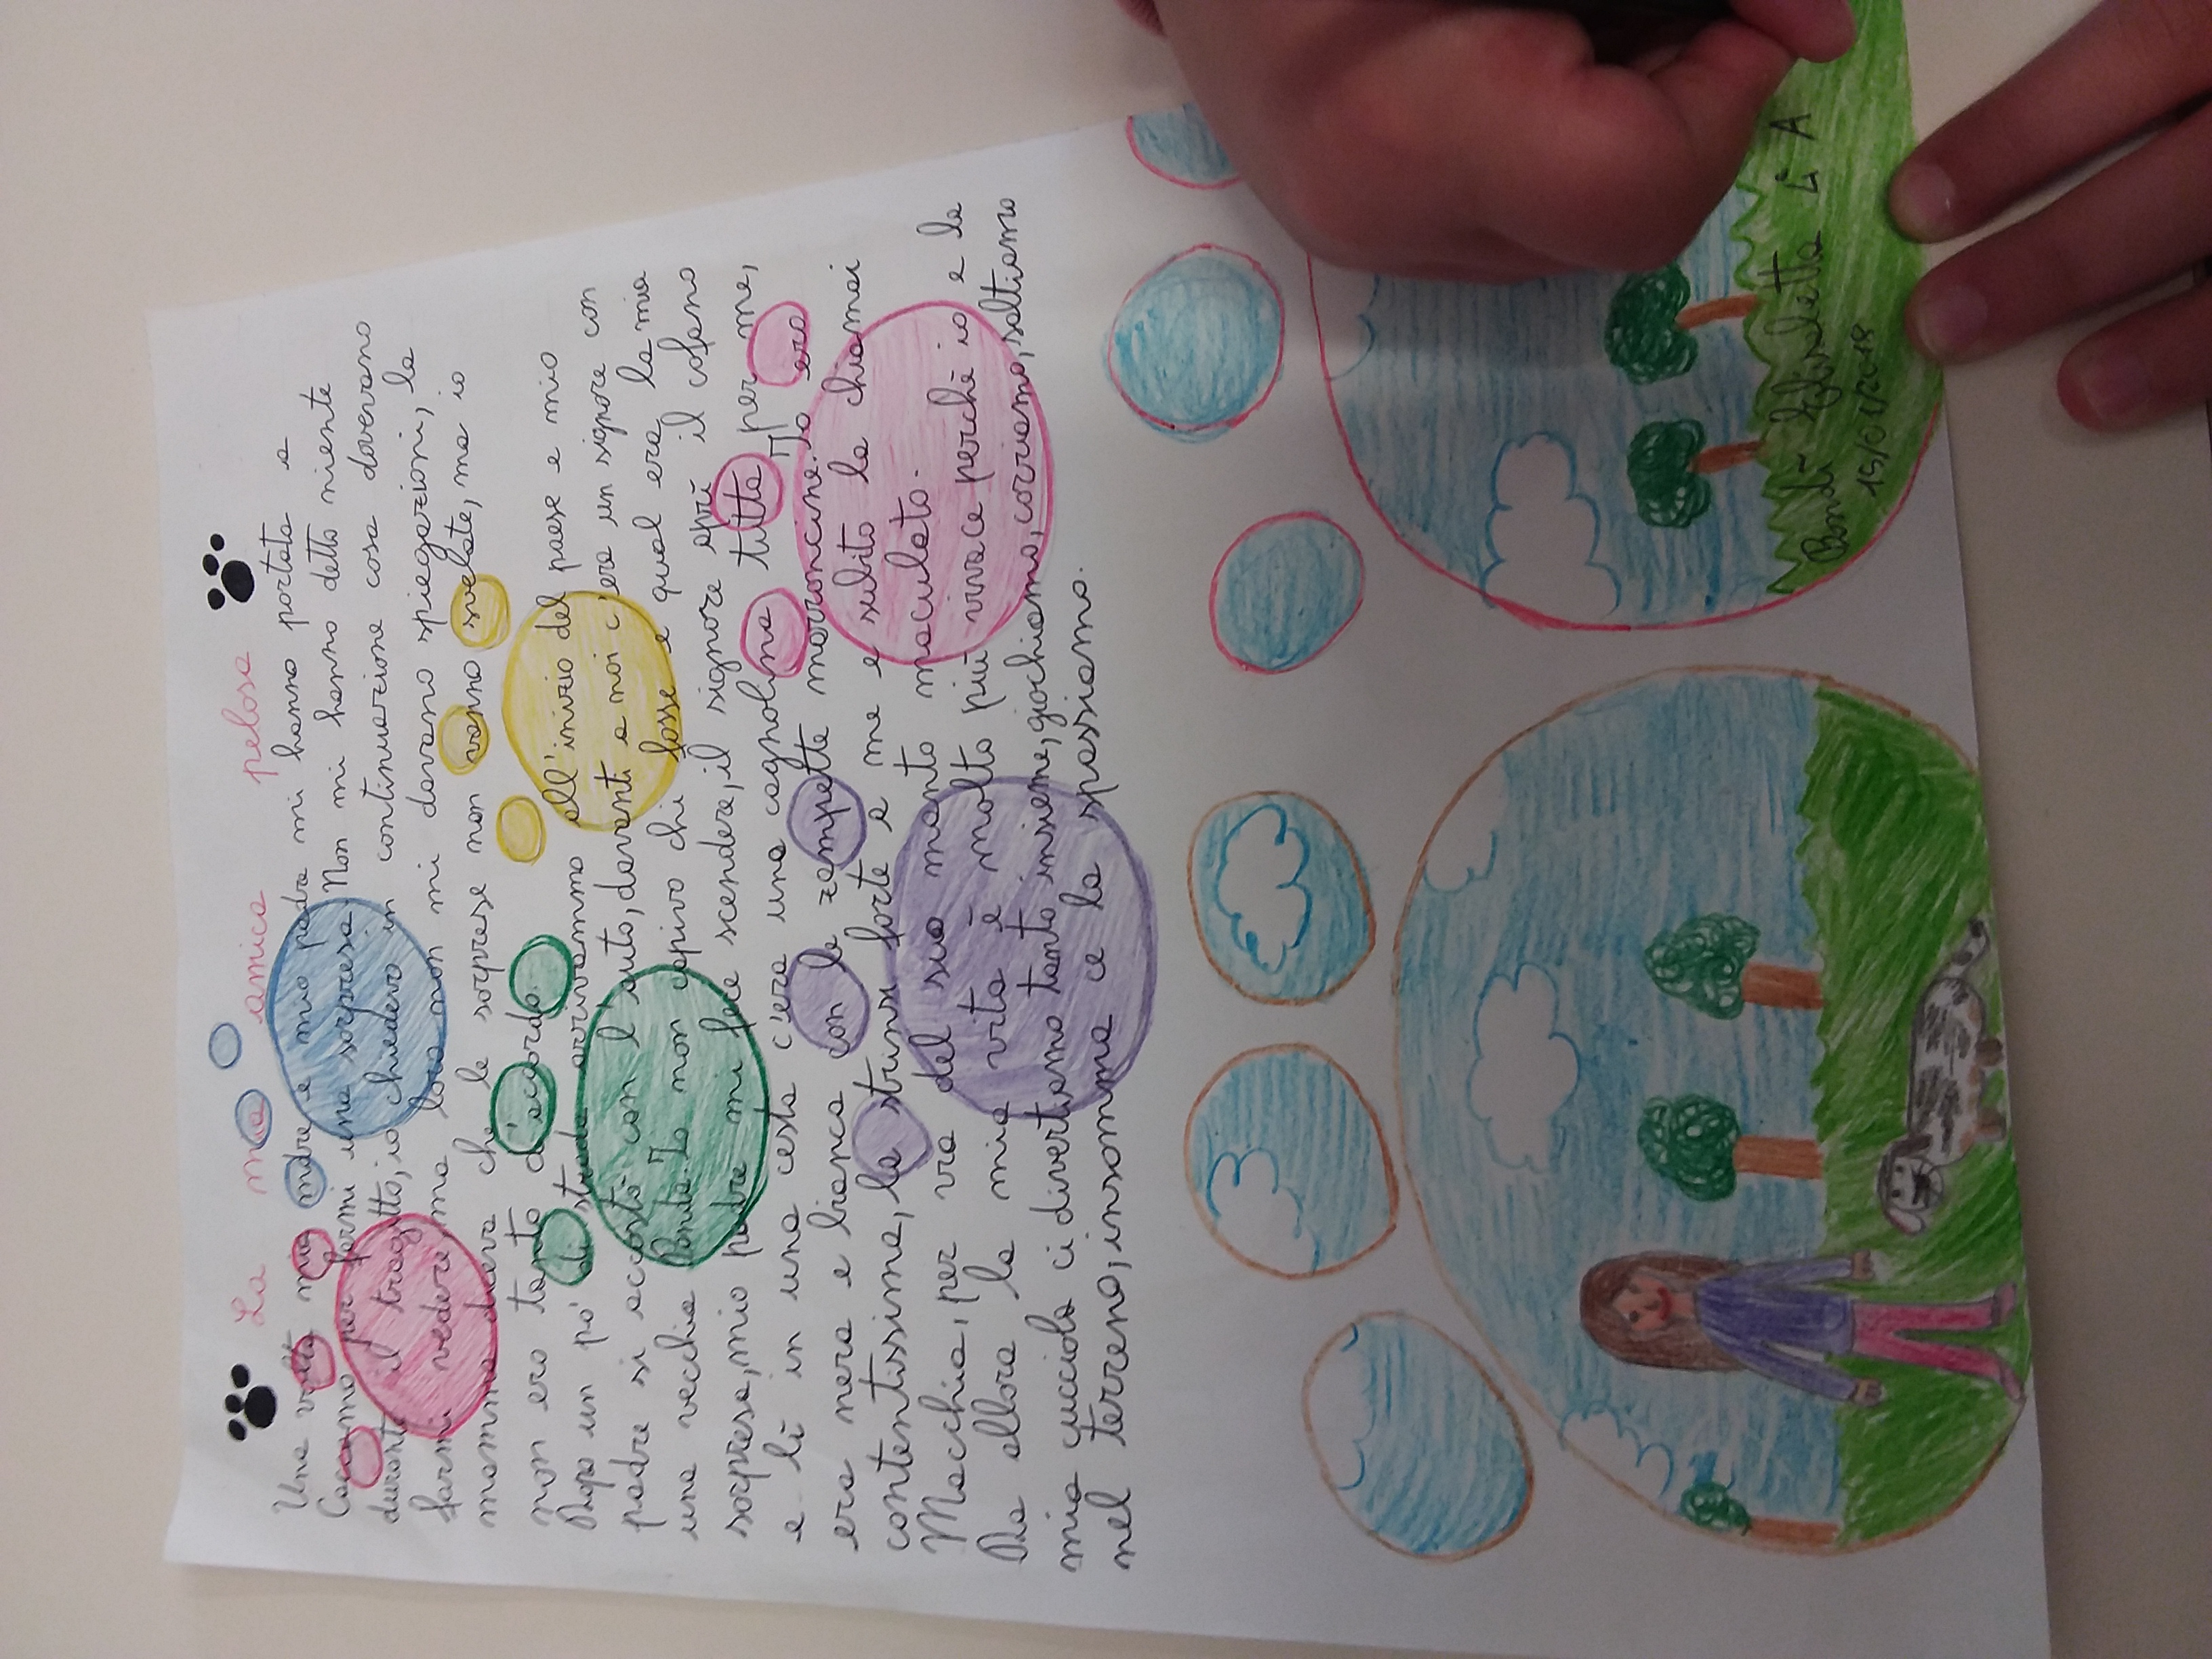 La mia amica pelosa
Una volta mia madre e mio padre mi hanno portata a
Caccamo per farmi una sorpresa. Non mi hanno detto niente
durante il tragitto, io chiedevo in continuazione cosa dovevano
farmi vedere, ma loro non mi davano spiegazioni, la
mamma diceva che le sorprese non vanno svelate, ma io
non ero tanto d'accordo.
Dopo un po' di strada arrivammo all'inizio del paese e mio
padre si accostò con l'auto, davanti a noi c'era un signore con
una vecchia Panda. Io non capivo chi fosse e qual era la mia
sorpresa, mio padre mi fece scendere, il signore aprì il cofano
e lì in una cesta c'era una cagnolina tutta per me,
era nera e bianca con le zampette marroncine. Io ero
contentissima, la strinsi forte a me e subito la chiamai
Macchia, per via del suo manto maculato.
Da allora la mia vita è molto più vivace perchè io e la
mia cucciola ci divertiamo tanto insieme, giochiamo, corriamo, saltiamo
nel terreno, insomma ce la spassiamo.
Bondì Elisabetta A
15/01/2018